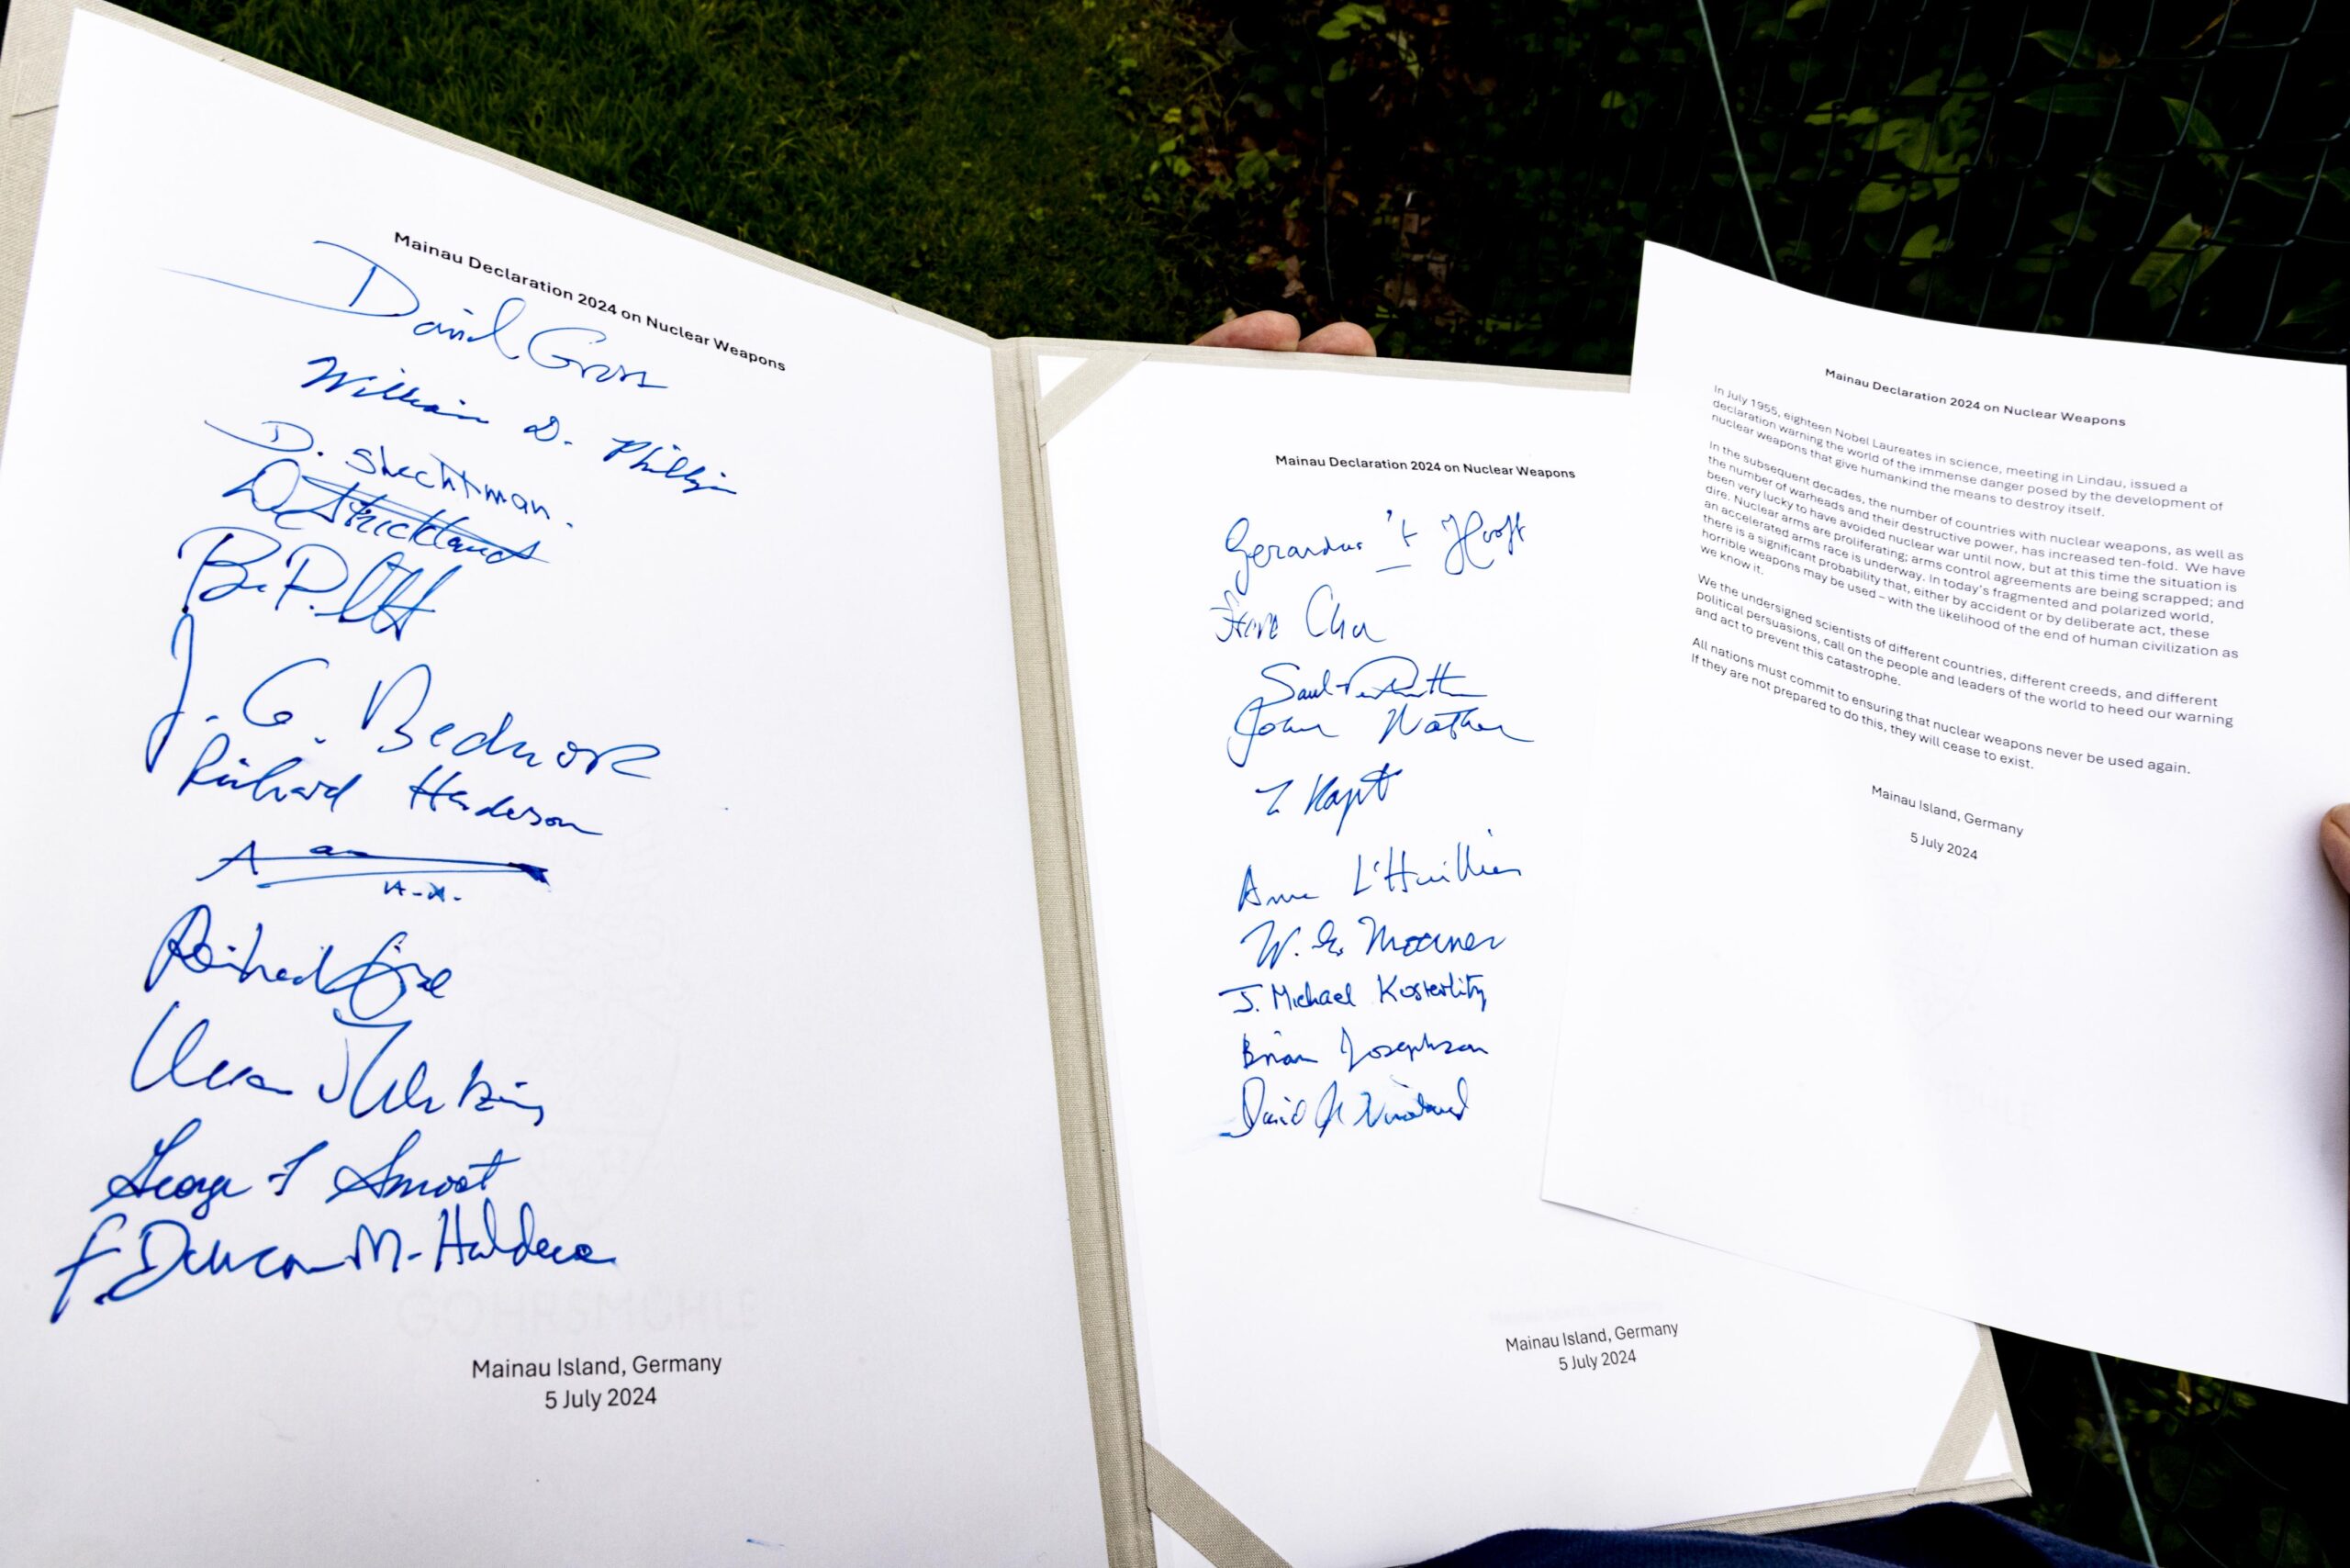 Mainau Declaration 2024 on Nuclear Weapons
David Gross
William D. Phillips
D. Shechtman.
D Strickland
B. P.
J. G. Bednorz
Richard Henderson
A
Reinhard
George F Smoot
F. Duncan M. Haldane
Mainau Island, Germany
5 July 2024
Mainau Declaration 2024 on Nuclear Weapons
Gerardus 't Hooft
Steve Chu
Saul Perlmutter
John Mather
Anne L'Huillier
W. E. Moerner
J. Michael Kosterlitz
Brian Josephson
David J Wineland
Mainau Island, Germany
5 July 2024
Mainau Declaration 2024 on Nuclear Weapons
In July 1955, eighteen Nobel Laureates in science, meeting in Lindau, issued a
declaration warning the world of the immense danger posed by the development of
nuclear weapons that give humankind the means to destroy itself.
In the subsequent decades, the number of countries with nuclear weapons, as well as
the number of warheads and their destructive power, has increased ten-fold. We have
been very lucky to have avoided nuclear war until now, but at this time the situation is
dire. Nuclear arms are proliferating; arms control agreements are being scrapped; and
an accelerated arms race is underway. In today's fragmented and polarized world,
there is a significant probability that, either by accident or by deliberate act, these
horrible weapons may be used – with the likelihood of the end of human civilization as
we know it.
We the undersigned scientists of different countries, different creeds, and different
political persuasions, call on the people and leaders of the world to heed our warning
and act to prevent this catastrophe.
All nations must commit to ensuring that nuclear weapons never be used again.
If they are not prepared to do this, they will cease to exist.
Mainau Island, Germany
5 July 2024